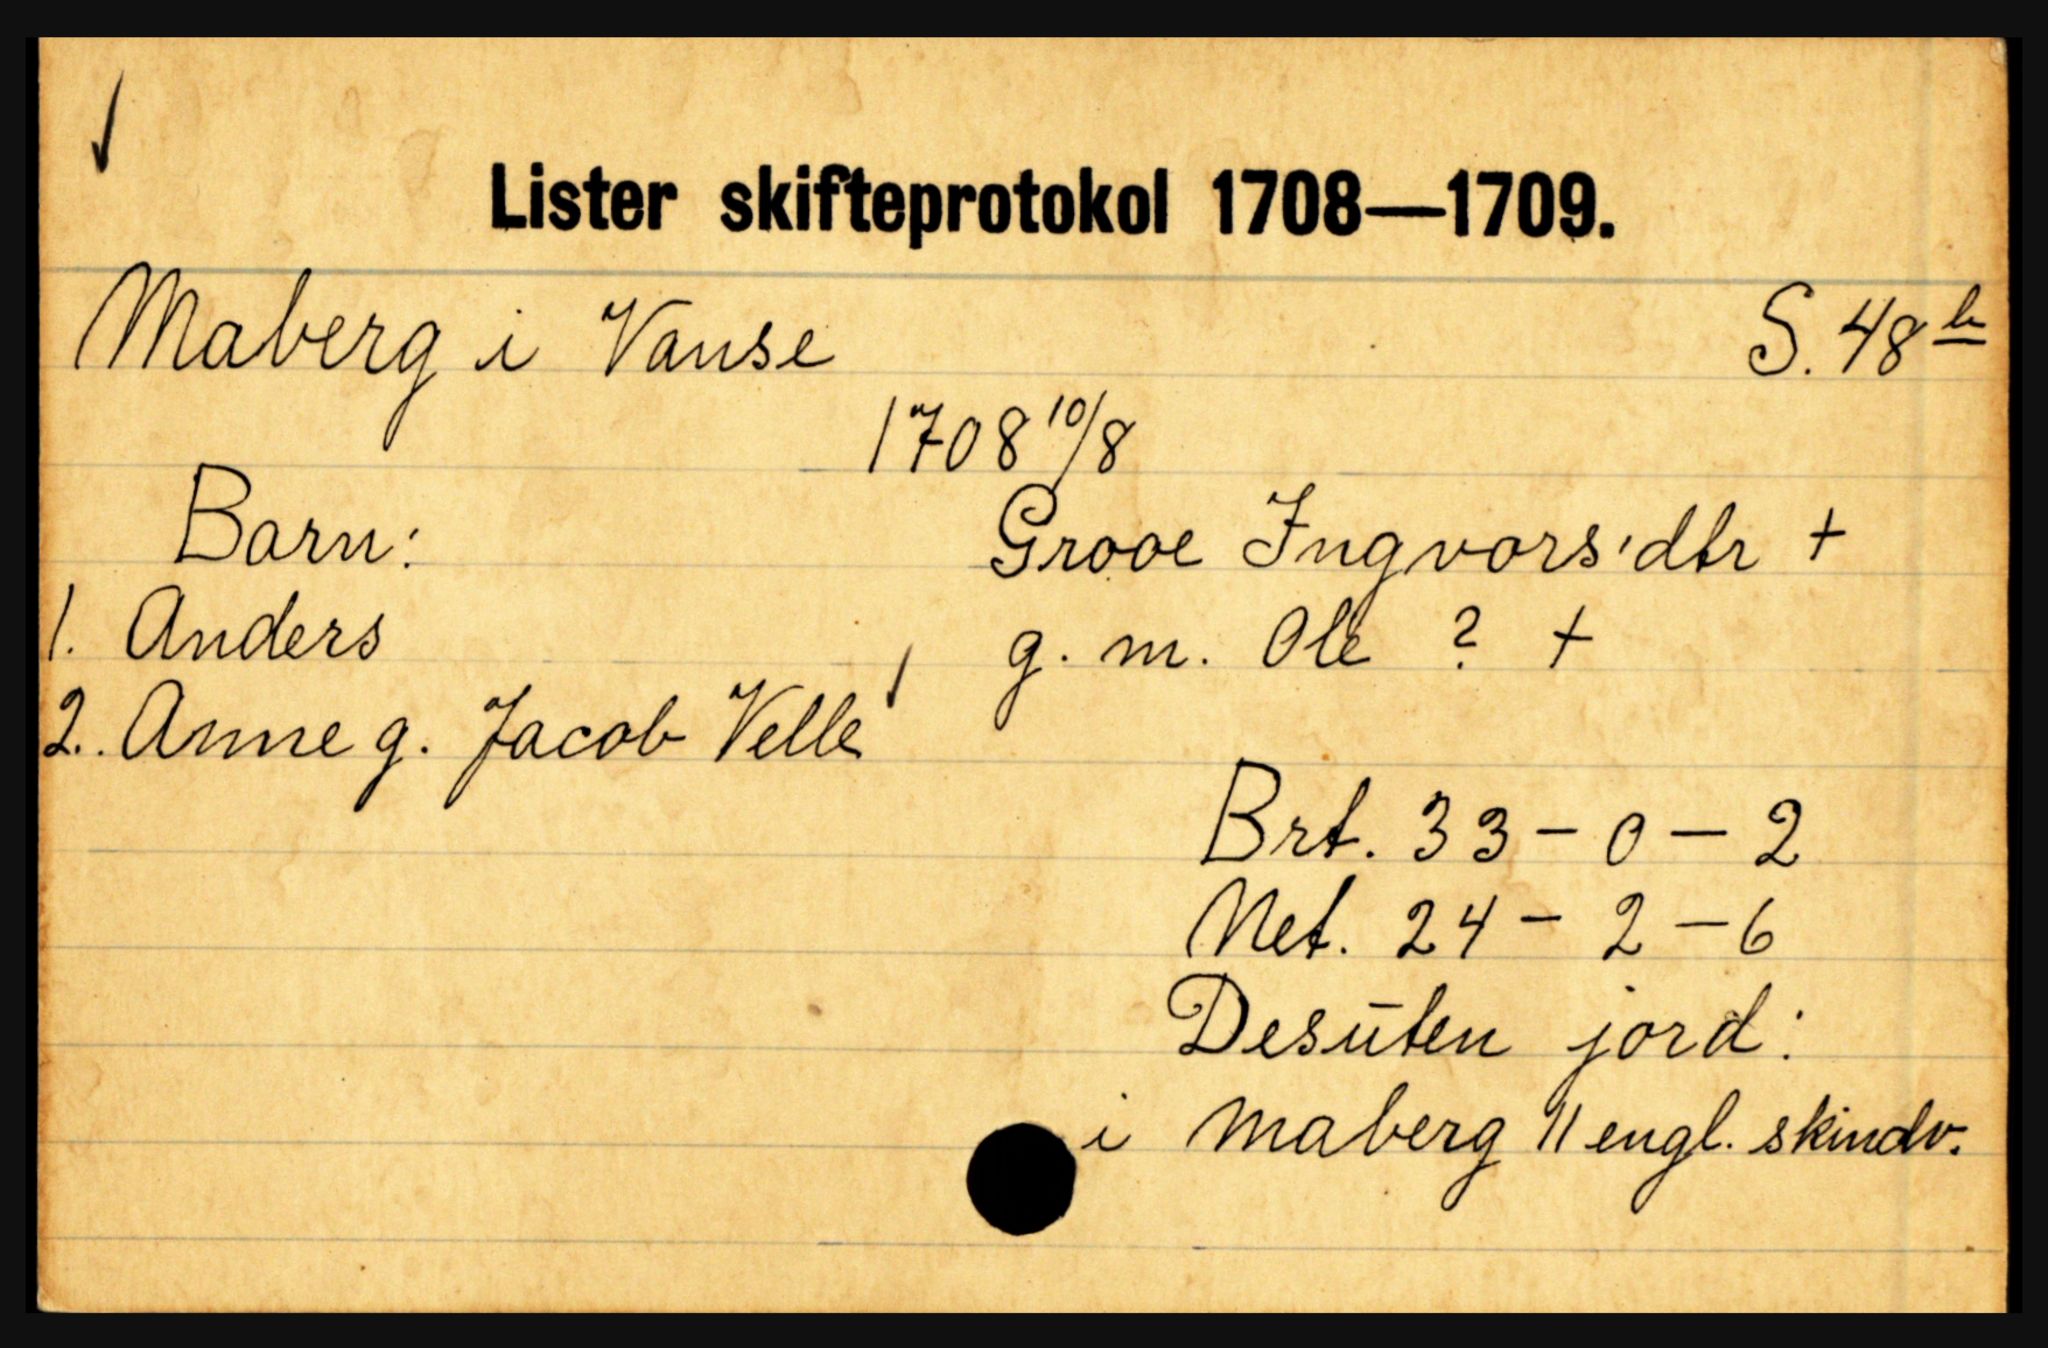 Lister skifteprotokol 1708—1709.
Maberg i Vanse S. 48 b
1708 10/8
Barn: Grooe Ingvors'dtr +
1. Anders g. m. Ole ? +
2. Anne g. Jacob Velle
Brt. 33 – 0 – 2
Net. 24 – 2 – 6
Desūten jord:
i Maberg 11 engl. skindv.